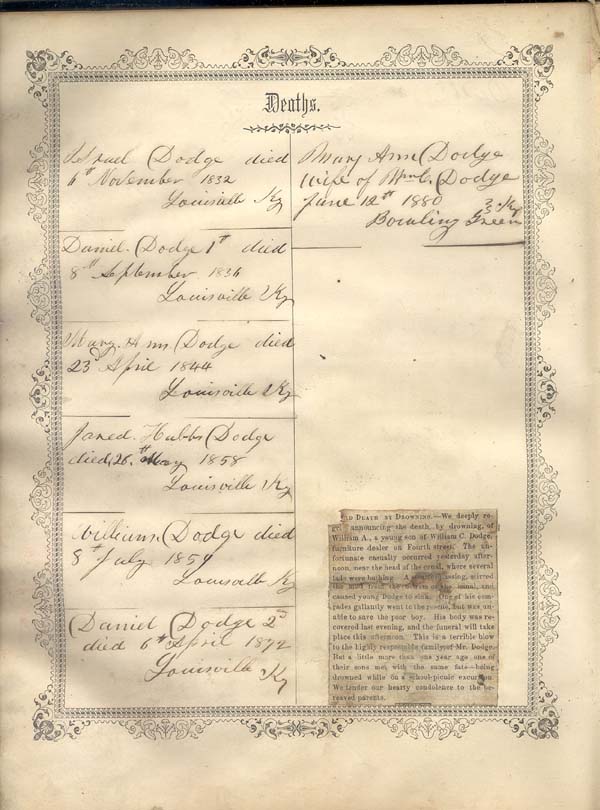 Deaths.
Israel Dodge died
6th November 1832
Louisville Ky
Daniel. Dodge 1st died
8th September 1836
Louisville Ky
Mary. Ann Dodge died
23d April 1844
Louisville Ky
Jared. Hubbs Dodge
died, 26th May 1858
Louisville Ky
William. Dodge died
8th July 1859
Louisville Ky
Daniel Dodge 2d
died 6th April 1872
Louisville Ky
Mary Ann Dodge
wife of Wm C. Dodge
June 12th 1880
Bowling Green Ky
Death by Drowning.—We deeply re-
announcing the death, by drowning, of
William A., a young son of William C. Dodge,
furniture dealer on Fourth street. The un-
fortunate casualty occurred yesterday after-
noon, near the head of the canal, where several
lads were bathing. A passing, stirred
the mud from the bottom of the canal, and
caused young Dodge to sink. One of his com-
rades gallantly went to the rescue, but was un-
able to save the poor boy. His body was re-
covered last evening, and the funeral will take
place this afternoon. This is a terrible blow
to the highly respectable family of Mr. Dodge.
But a little more than one year ago one of
their sons met with the same fate—being
drowned while on a school-picnic excursion.
We tender our hearty condolence to the be-
reaved parents.